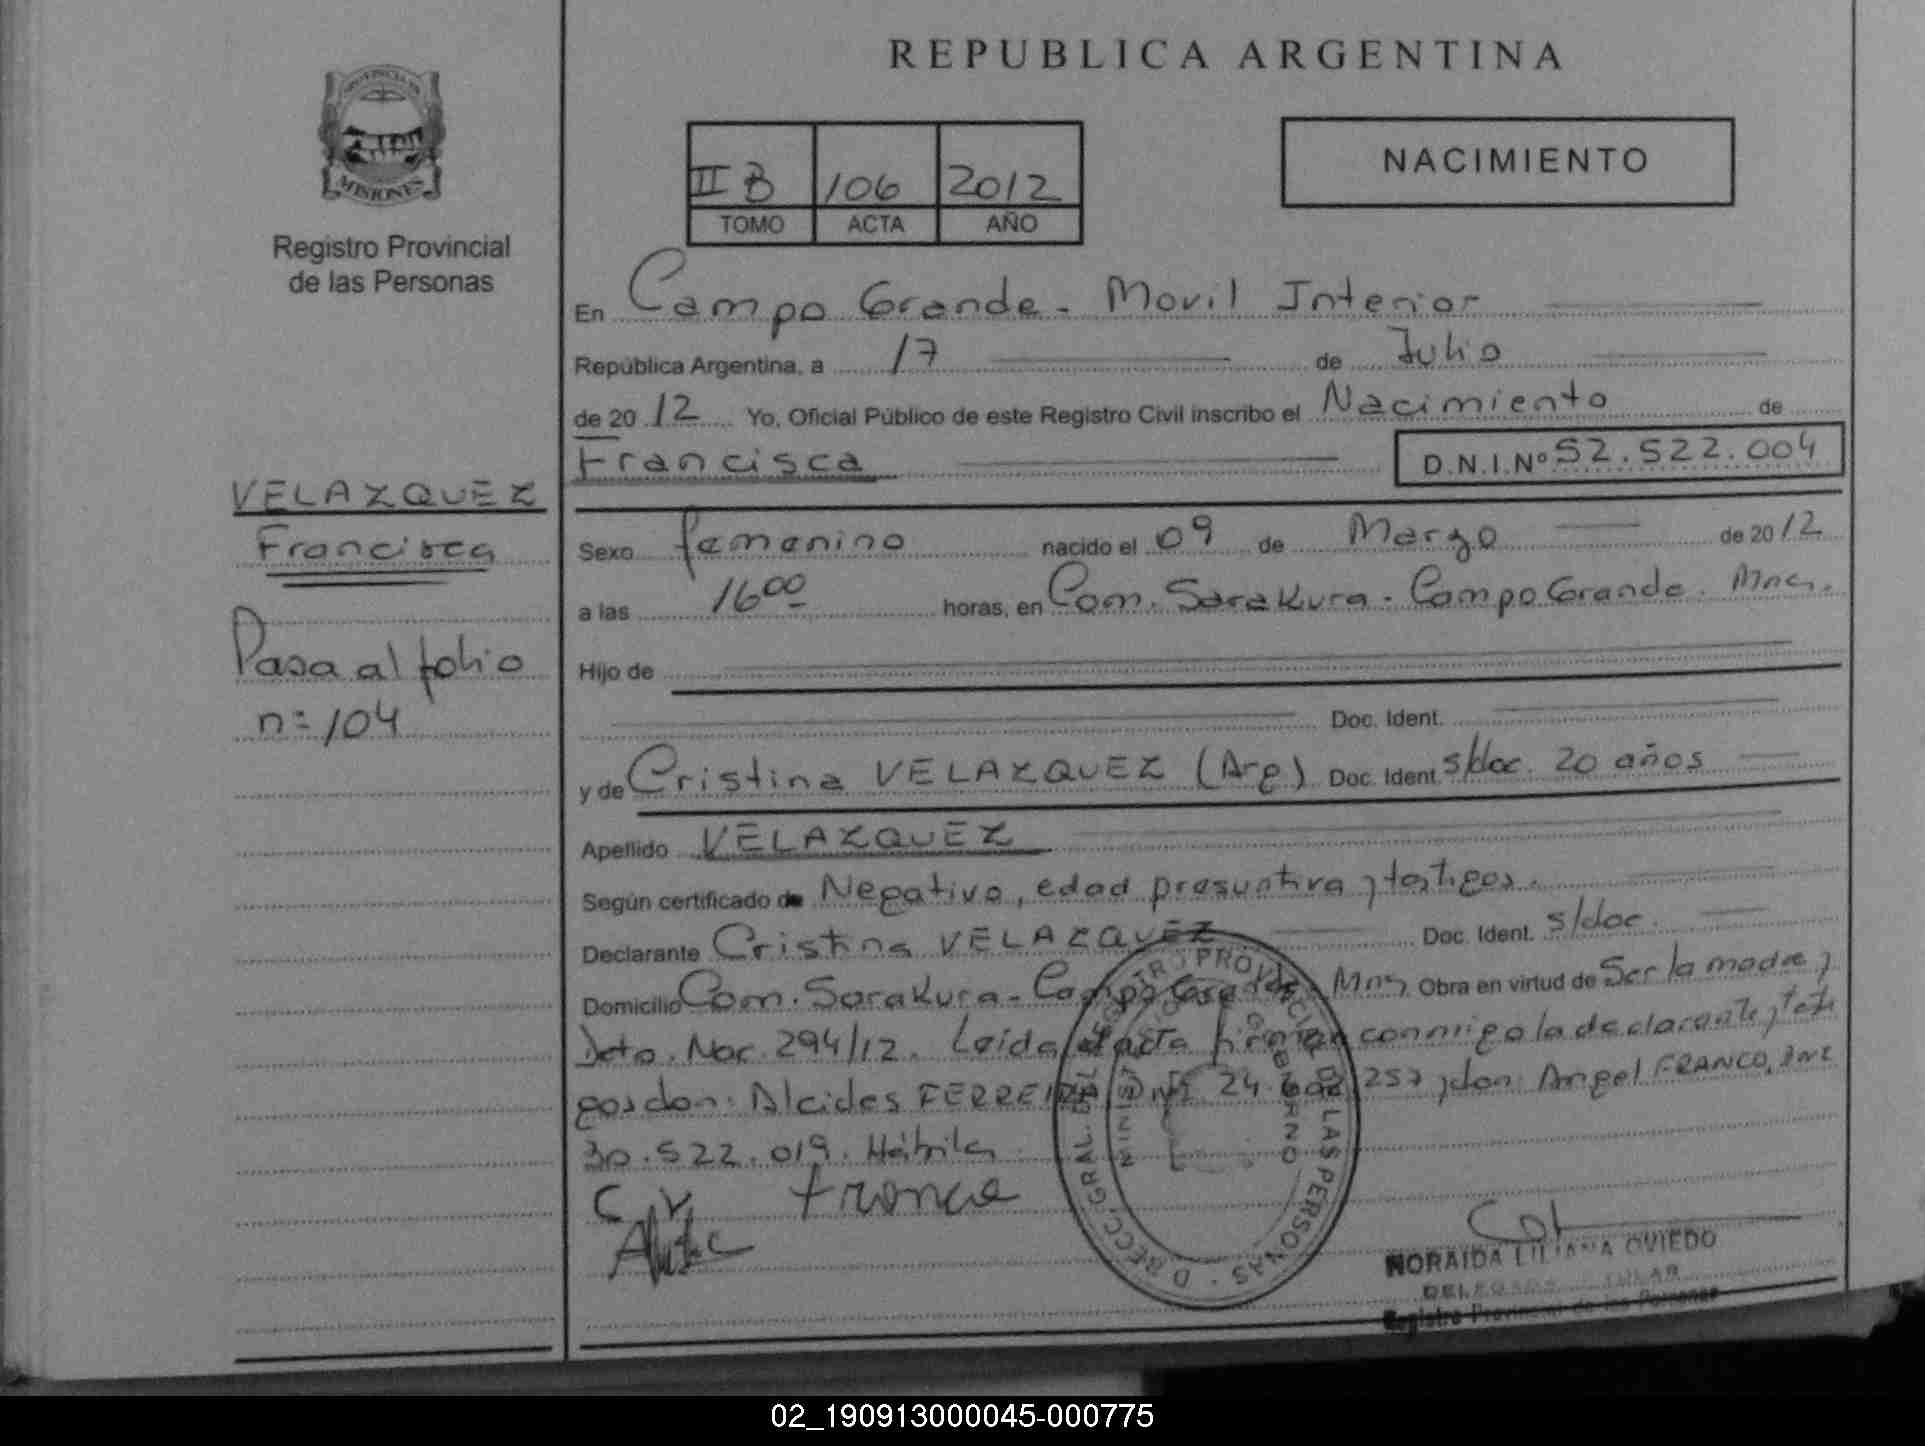 PROVINCIA DE
MISIONES
Registro Provincial
de las Personas
VELAZQUEZ
Francisca
Pasa al folio
n= 104
REPUBLICA ARGENTINA
II B 106 2012
TOMO ACTA AÑO
NACIMIENTO
En Campo Grande - Movil Interior
República Argentina, a 17 de Julio
de 20 12 Yo, Oficial Público de este Registro Civil inscribo el Nacimiento de
Francisca D.N.I.Nº 52.522.004
Sexo femenino nacido el 09 de Marzo de 20 12
a las 16 00 horas, en Com. Sarakura - Campo Grande. Mnes.
Hijo de
Doc. Ident.
y de Cristina VELAZQUEZ (Arg) Doc. Ident. s/doc. 20 años
Apellido VELAZQUEZ
Según certificado de Negativo, edad presuntiva y testigos.
Declarante Cristina VELAZQUEZ Doc. Ident. s/doc.
Domicilio Com. Sarakura - Campo Grande. Mns, Obra en virtud de Ser la madre y
Dcto. Nac. 294/12. Leída el acta firman conmigo la declarante y testi
gos don: Alcides FERREIRA, DNI 24. 257 y don: Angel FRANCO, DNI
30.522.019. Hábiles
C. V. Franco
DIRECC. GRAL. DEL REGISTRO PROVINCIAL DE LAS PERSONAS
MINISTERIO DE GOBIERNO
NORAIDA LILIANA OVIEDO
DELEGADA TITULAR
Registro Provincial de las Personas
02_190913000045-000775